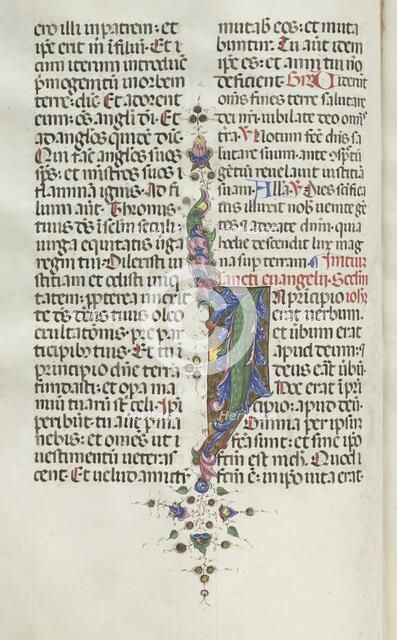 ero illi in patrem: et
ipe erit m̄ i filiuȝ. Et
cum iterum introduc̄
pmogenitū in orbem
terre: dic̄. Et adorent
eum: oēs angli dī. Et
ad anglos quidē dic̄:
Qui fac̄ anglos suos
sp̄s: et mīstros suos i
flāmam ignis. Ad fi
lium aūt. Thronus
tuus ds̄ i sclm̄ seculi:
uirga equitatis uga
regni tui. Dilexisti iu
stitiam et odisti iniq̄
tatem: pp̄terea unxit
te ds̄: ds̄ tuus oleo
exultatōnis: pre par
ticipibꝰ tuis. Et tu in
principio dn̄e terrā
fundasti: et opa ma
nuū tuaꝝ st̄ celi. Ip̄i
peribūt: tu aūt pma
nebis: et om̄es ut i
uestimentū ueteras
cent. Et uelud amictū
mutab̄ eos: et muta
buntur. Tu aūt idem
ipe es: et anni tui nō
deficient. Gr̄ Uiderūt
om̄s fines terre salutare
dei nr̄i: iubilate deo om̄s
tr̄a. V̄ Notum fec̄ dn̄s sa
lutare suum: ante
gētiū reuelauit iustitiā
suam. Alla. V̄ Dies scīfica
tus illuxit nob̄ uenite gē
tes et adorate dn̄m: quia
hodie descendit lux mag
na sup terram. Initiuȝ
sancti euangelii. Scd̄m
In principio ioh̄eȝ
erat uerbum:
et ūbum erat
apud deum:
deus erat ūbūȝ.
Hoc erat i pri
cipio: apud deū.
Omnia per ipsuȝ
fcā sunt: et sine ipo
fctm̄ est nich̄. Quod
fctm̄ ē: in ipo uita erat